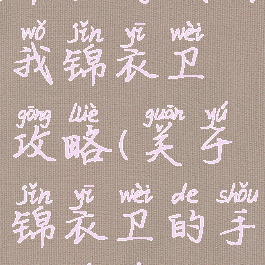 wǒ jǐn yī wèi
我锦衣卫
gōng lüè guān yú
攻略(关于
jǐn yī wèi de shǒu
锦衣卫的手